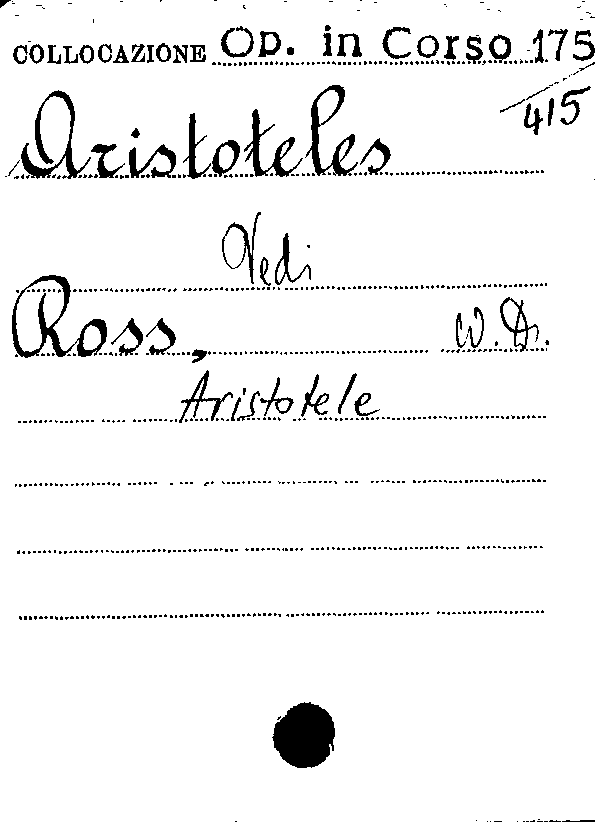 COLLOCAZIONE Op. in Corso 175
415
Aristoteles
Vedi
Ross, W. D.
Aristotele